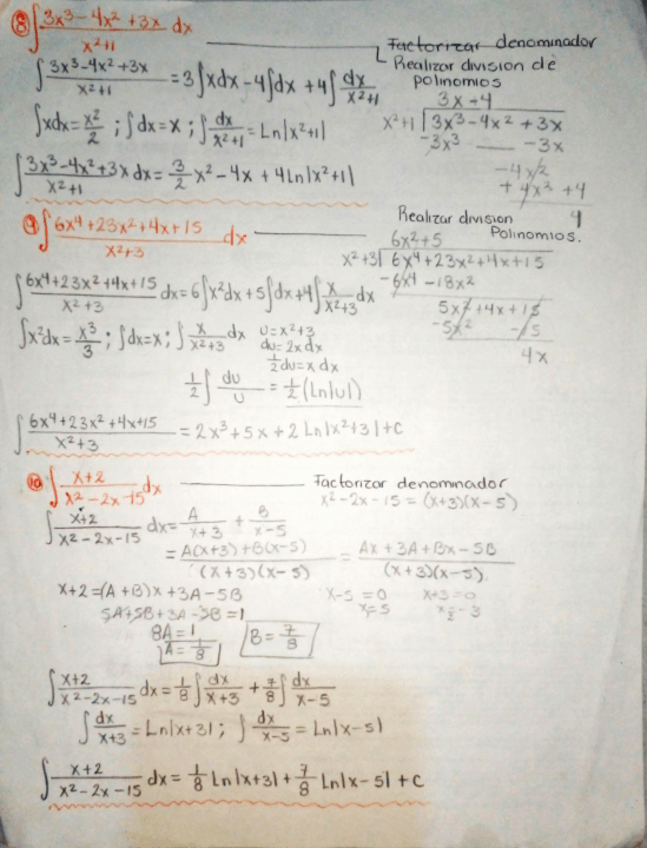 ⑧ ∫ 3x³ - 4x² + 3x / x²+1 dx
Factorizar denominador
Realizar division de
polinomios
∫ 3x³-4x²+3x / x²+1 = 3∫xdx - 4∫dx + 4∫ dx / x²+1
3x -4
x²+1 | 3x³ - 4x² + 3x
-3x³ -3x
∫xdx = x²/2 ; ∫dx = x ; ∫ dx / x²+1 = Ln|x²+1|
-4x²
+4x² +4
4
∫ 3x³-4x²+3x / x²+1 dx = 3/2 x² - 4x + 4Ln|x²+1|
⑨ ∫ 6x⁴+23x²+4x+15 / x²+3 dx
Realizar division
Polinomios.
6x²+5
x²+3 | 6x⁴+23x²+4x+15
-6x⁴ -18x²
5x² +4x +15
-5x² -15
4x
∫ 6x⁴+23x²+4x+15 / x²+3 dx = 6∫x²dx + 5∫dx + 4∫ x / x²+3 dx
∫x²dx = x³/3 ; ∫dx=x ; ∫ x / x²+3 dx
U=x²+3
du=2xdx
½du=x dx
½∫ du/U = ½(Ln|u|)
∫ 6x⁴+23x²+4x+15 / x²+3 = 2x³+5x+2Ln|x²+3|+c
⑩ ∫ x+2 / x²-2x-15 dx
Factorizar denomnador
x²-2x-15 = (x+3)(x-5)
∫ x+2 / x²-2x-15 dx = A / x+3 + B / x-5
= A(x+3)+B(x-5) / (x+3)(x-5) = Ax+3A+Bx-5B / (x+3)(x-5).
x+2=(A+B)x+3A-5B
x-5=0 x+3=0
x=5
5A+5B+3A-5B=1
8A=1
A=1/8
B=7/8
∫ x+2 / x²-2x-15 dx = 1/8 ∫ dx / x+3 + 7/8 ∫ dx / x-5
∫ dx / x+3 = Ln|x+3| ; ∫ dx / x-5 = Ln|x-5|
∫ x+2 / x²-2x-15 dx = 1/8 Ln|x+3| + 7/8 Ln|x-5| +c